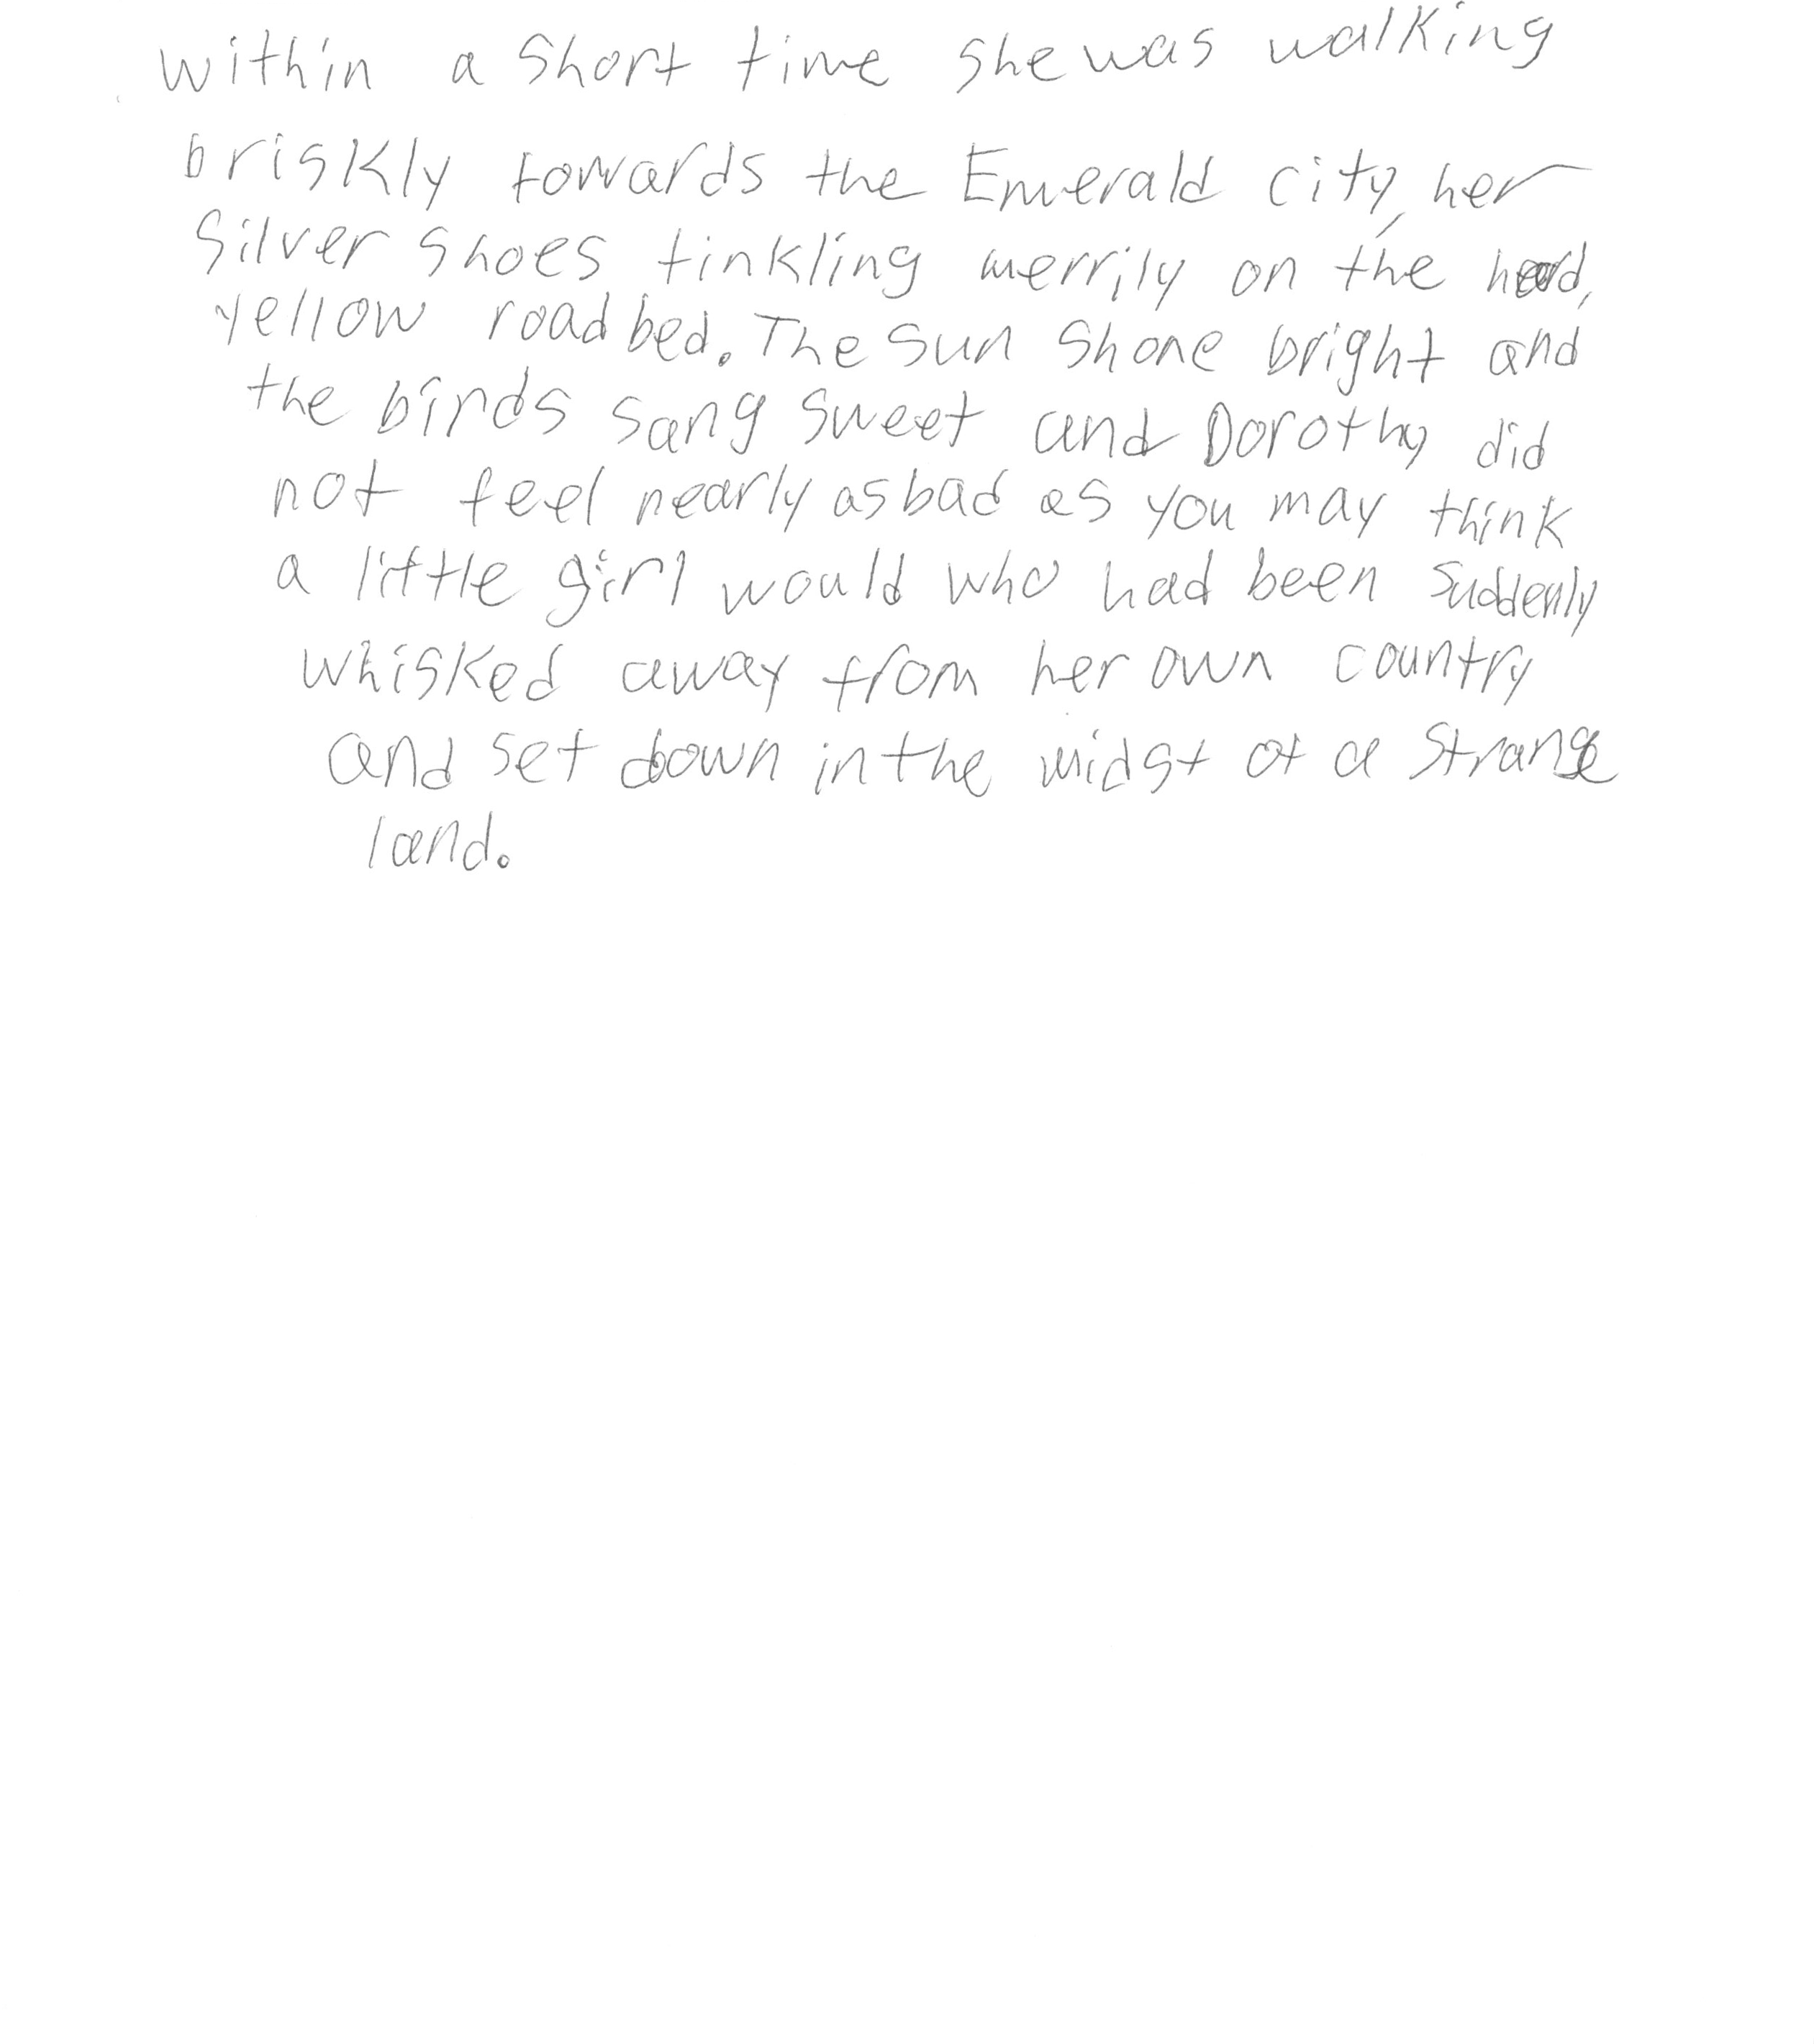 within a short time she was walking
briskly towards the Emerald city, her
silver shoes tinkling merrily on the hard,
yellow roadbed. The sun shone bright and
the birds sang sweet and Dorothy did
not feel nearly as bad as you may think
a little girl would who had been suddenly
whisked away from her own country
and set down in the midst of a strange
land.